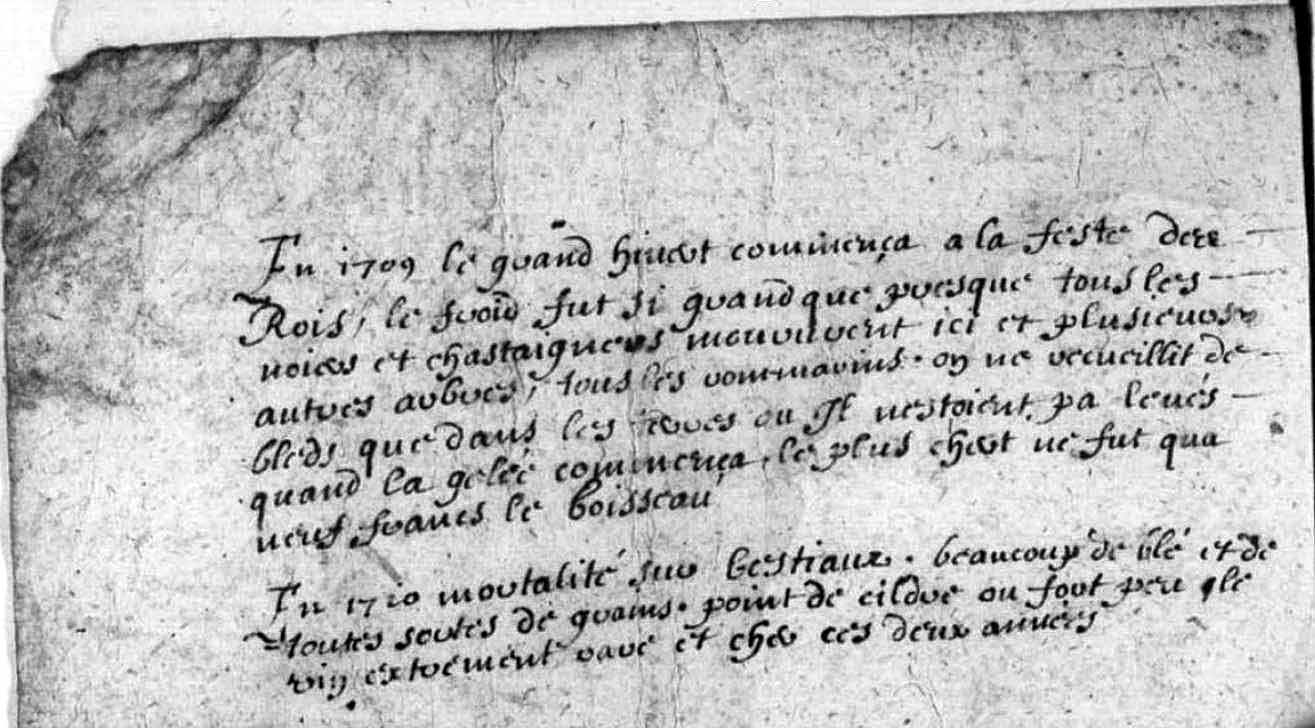 En 1709 le grand hivert commença a la feste des
Rois, le froid fut si grand que presque tous les
noiers et chastaigners moururent ici et plusieurs
autres arbres, tous les rommarins. on ne recueillit de
bleds que dans les terres ou Il nestoient pa levés
quand la gelée commença, le plus chert ne fut qua
neuf francs le boisseau
En 1710 mortalité sur bestiaux. beaucoup de blé et de
toutes sortes de grains. point de cildre ou fort peu &le
vin extrement rare et cher ces deux années